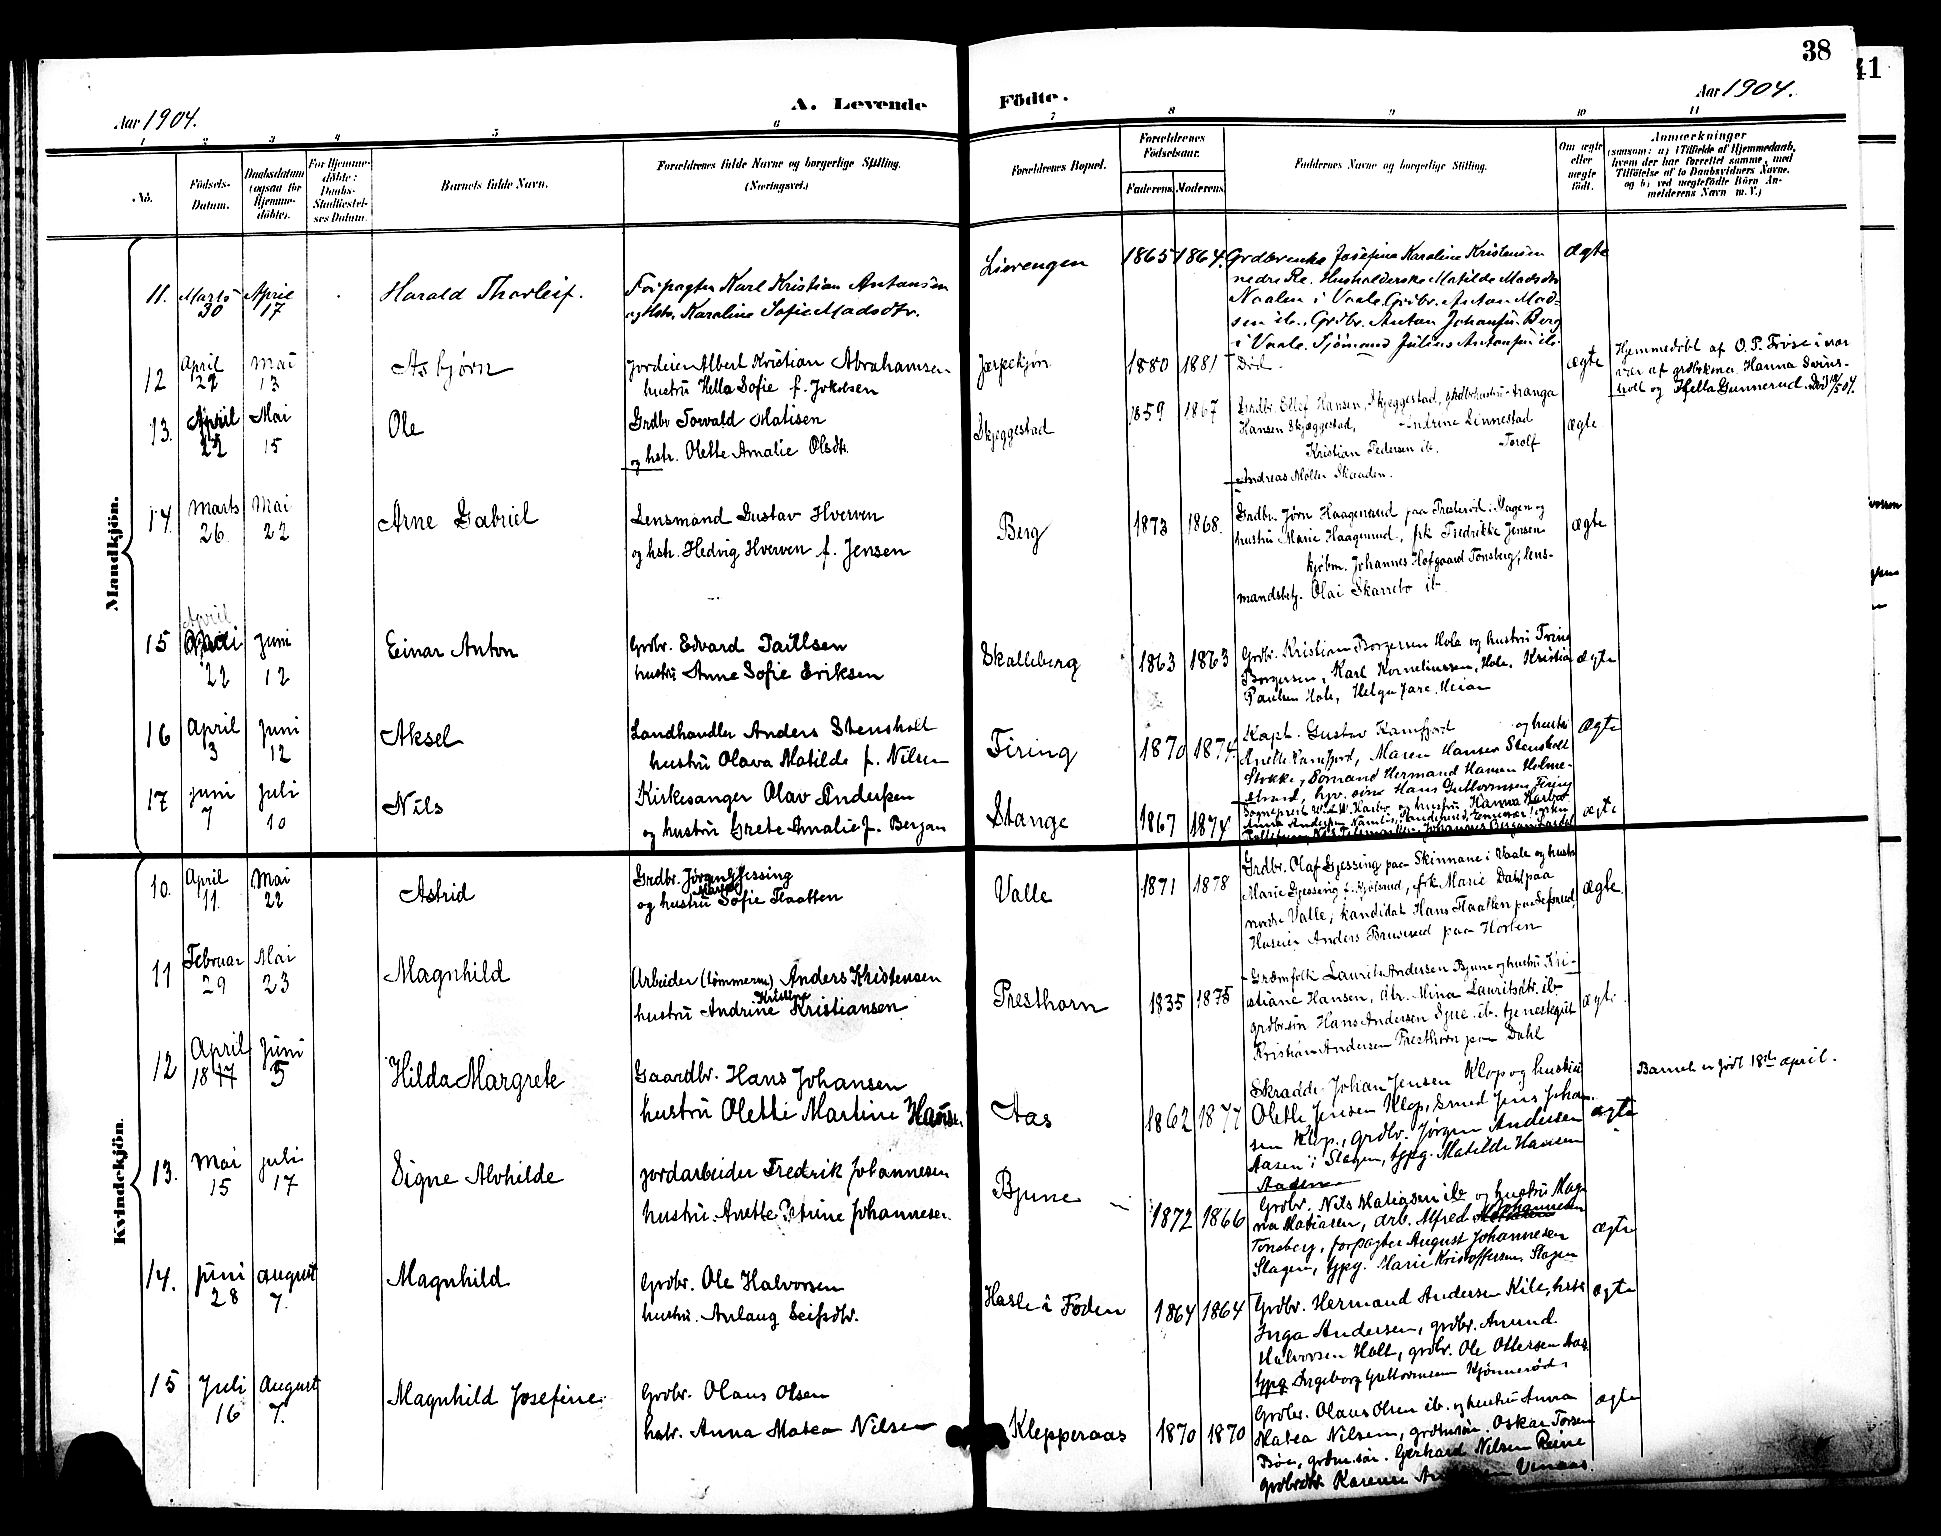 38
41
Aar 1904.
A. Levende Födte.
Aar 1904.
1 2 3 4 5 6 7 8 9 10 11
No.
Födsels-Datum.
Daabsdatum (ogsaa for Hjemme-döbte).
For Hjemme-döbte: Daabs-Stadfæstel-ses Datum.
Barnets fulde Navn.
Forældrenes fulde Navne og borgerlige Stilling.
(Næringsvei.)
Forældrenes Bopæl.
Forældrenes Födselsaar.
Faderens. Moderens.
Faddernes Navne og borgerlige Stilling.
Om ægte eller uægte födt.
Anmærkninger
(saasom: a) i Tilfælde af Hjemmedaab,
hvem der har forrettet samme, med
Tilföielse af to Daabsvidners Navne.
og b) ved uægtefödte Börn An-
melderens Navn m. V.)
Mandkjön.
11. Marts 30 April 17 Harald Thorleif.
Forpagter Karl Kristian Antonsen
og hstr. Karoline Sofie Madsdtr.
Lierengen 1865 1864.
Grdbrenke Josefine Karoline Kristensen
nedre Re. Husholderske Matilde Madsdtr
Naalen i Vaale. Grdbr. Anton Mad-
sen ib., Grdbr. Anton Johansen Berg
i Vaale. Sjömand Julius Antonsen ib.
ægte
12 April 22 Mai 13 Asbjørn
Jordeier Albert Kristian Abrahamsen
hustru Hella Sofie f. Jakobsen
Jarpekjøn 1880 1881 Død. ægte
Hjemmedøbt af O. P.
vær af Hanna
og Hella Gunnerud. Død
13. April 22 Mai 15 Ole
Grdbr Torvald Matisen
og hstr. Olette Amalie Olsdtr.
Skjeggestad 1859 1867
Grdbr. Ellef Hansen, Skjeggestad,
Hansen Skjæggestad, Andrine Linnestad
Kristian Pedersen ib. Torolf
Andreas Møller Skaaden.
ægte
14. Marts 26 Mai 22 Arne Gabriel
Lensmand Gustav Hverven
og hstr. Hedvig Hverven f. Jensen
Berg 1873 1868.
Grdbr. Jørn Haagenrud paa Presterød i Slagen og
hustru Marie Haagenrud, frk Fredrikke Jensen
kjøbm. Johannes Hofgaard Tønsberg, lens-
mandsbetj. Olai Skarrebo ib.
ægte
15 April 22 Juni 12 Einar Anton
Grdbr. Edvard Paulsen
hustru Anne Sofie Eriksen
Skalleberg 1863 1863
Grdbr. Kristian Borgersen Hole og hustru
Borgersen, Karl Korneliussen, Hole, Kristia
Paulsen Hole, Helga Jare,
ægte
16 April 3 Juni 12 Aksel
Landhandler Anders Stensholt
hustru Olava Matilde f. Nilsen
Firing 1870 1874.
Kapt. Gustav Ramfjord og hustru
Anette Ramfjord, Maren Hansen Stensholt
Stokke, Hermand Hansen Holme-
strand, Hans Guttormsen Firing
ægte
17 Juni 7 Juli 10 Nils
Kirkesanger Olav Andersen
og hustru Grete Amalie f. Bergan
Stange 1867 1874
Sogneprest og hustru Hanna
ægte
Kvindekjön.
10. April 11. Mai 22 Astrid
Grdbr. Jørgen Gjessing
og hustru Sofie Flaatten
Valle 1871 1878
Grdbr. Olaf Gjessing paa Skinnane i Vaale og hustr
Marie Gjessing f. frk Marie Dahl paa
nordre Valle, kandidat Hans Flaatten paa
Huseier Anders Bruserud paa Horten
ægte
11 Februar 29 Mai 23 Magnhild
Arbeider (tømmerm) Anders Kristensen
hustru Andrine Kristine Kristiansen
Presthorn 1835 1875
Laurits Andersen Bjune og hustru Kri-
stiane Hansen, dtr. Mina Lauritsdtr. ib
grdbr.søn Hans Andersen ib. tjenestegut
Kristian Andersen Presthorn paa Dahl
ægte
12 April 18 17 Juni 5 Hilda Margrete
Gaardbr. Hans Johansen
hustru Olette Martine Hansen
Aas 1862 1877
Skrædder Johan Jensen Klop og hustru
Olette Jensen Klop, smed Jens Johan-
sen Klop., grdbr. Jørgen Andersen
Aasen i Slagen, tjpg. Matilde Hansen
ægte
Barnet er født 18de april.
13. Mai 15 Juli 17 Signe Alvhilde
Jordarbeider Fredrik Johannesen
hustru Anette Petrine Johannesen.
Bjune 1872 1866
Grdbr. Nils Matiasen ib og hustru Mag-
na Matiasen, arb. Alfred Johannesen
Tønsberg, forpagter August Johannesen
Slagen, tjpg. Marie Kristoffersen Slagen
ægte
14. Juni 28 August 7. Magnhild
Grdbr. Ole Halvorsen
hustru. Anlaug Leifsdtr.
Hasle i Føden 1864 1864
Grdbr. Hermand Andersen Kile, hstr
Inga Andersen, grdbr. Amund
Halvorsen Holt, grdbr. Ole Ottersen Aas
tjpg Ingeborg Guttormsen Kjønnerød
ægte
15 Juli 16 August 7. Magnhild Josefine
Grdbr. Olaus Olsen
hstr. Anna Matea Nilsen
Klepperaas 1870 1870
Grdbr. Olaus Olsen ib. og hustru Anna
Matea Nilsen, Oskar Torsen
Bøe, Gerhard Nilsen Reine
Karense
ægte